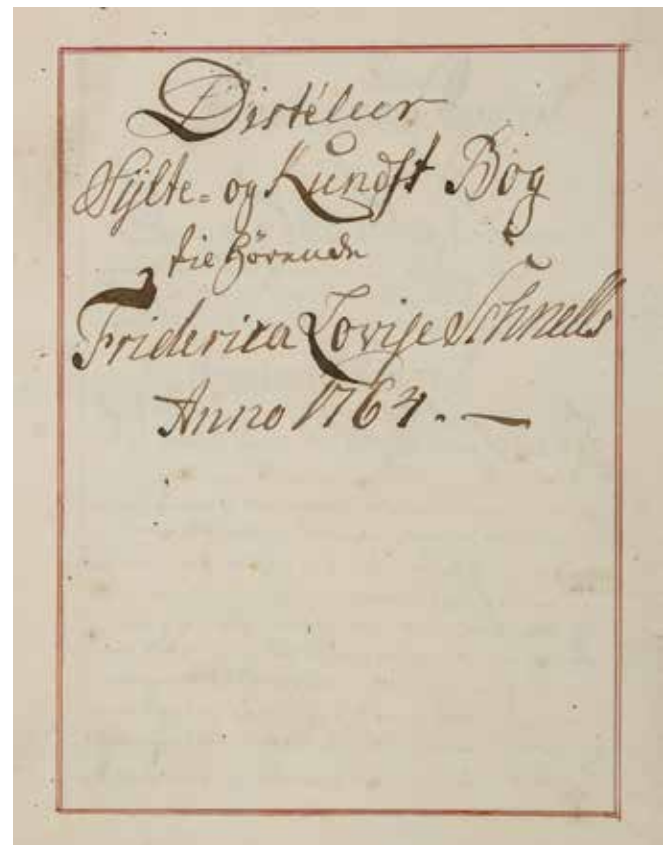 Distéleur
Sÿlte= og Kundst Bog
tilhørende
Friderica Lovise Schnells
Anno 1764.